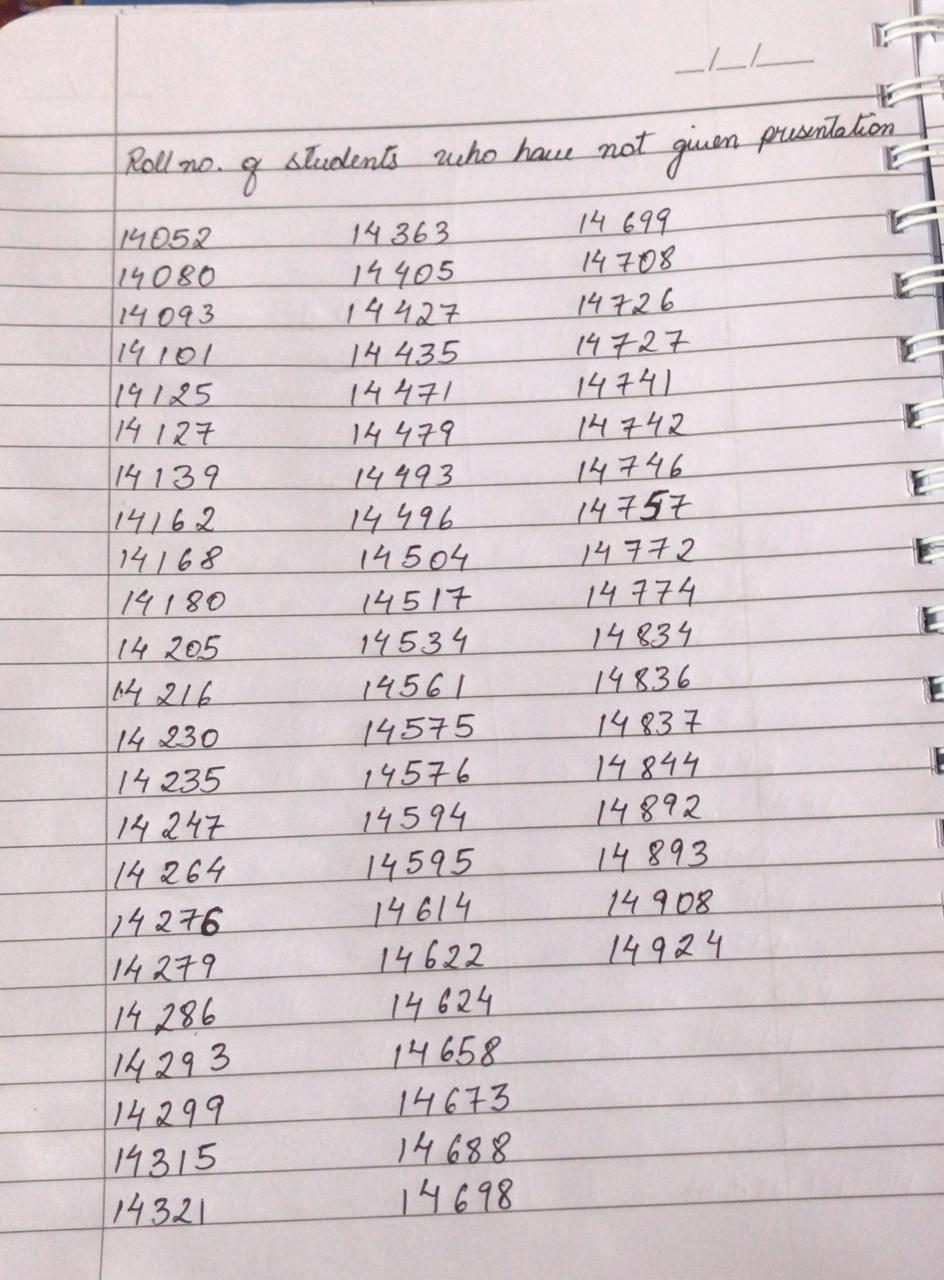 _/_/__
Roll no. of students who have not given presentation
14052 14363 14699
14080 14405 14708
14093 14427 14726
14101 14435 14727
14125 14471 14741
14127 14479 14742
14139 14493 14746
14162 14496 14757
14168 14504 14772
14180 14517 14774
14205 14534 14834
14216 14561 14836
14230 14575 14837
14235 14576 14844
14247 14594 14892
14264 14595 14893
14276 14614 14908
14279 14622 14924
14286 14624
14293 14658
14299 14673
14315 14688
14321 14698